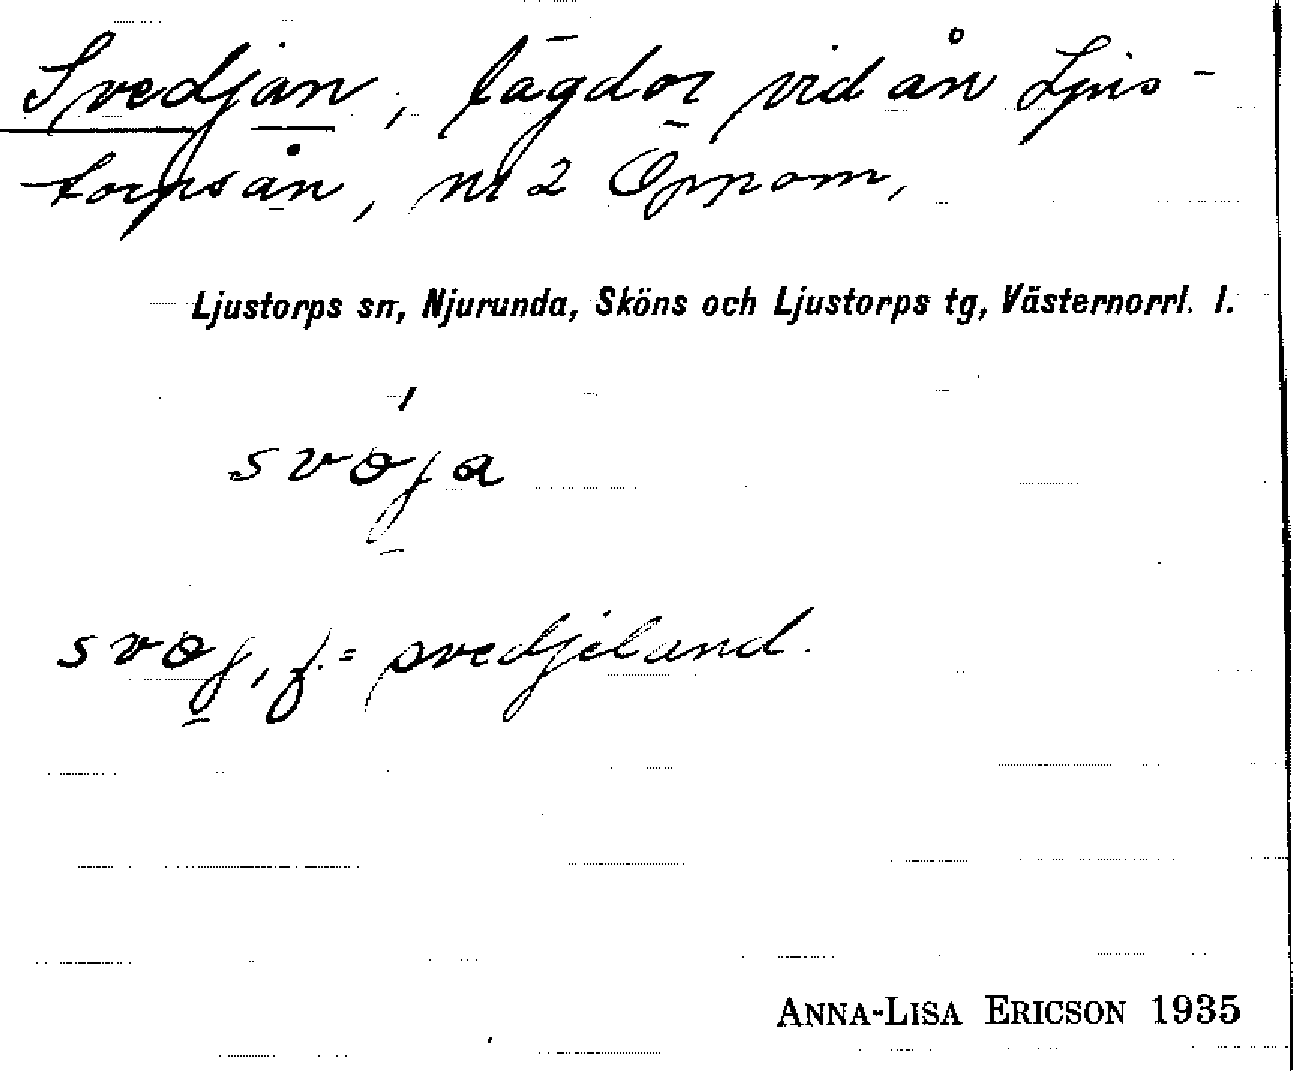 Svedjan, lägdor vid ån Ljus-
torpsån, nr 2 Öppom,
Ljustorps sn, Njurunda, Sköns och Ljustorps tg, Västernorrl. l.
svøja
svøj, f. = svedjeland.
ANNA-LISA ERICSON 1935